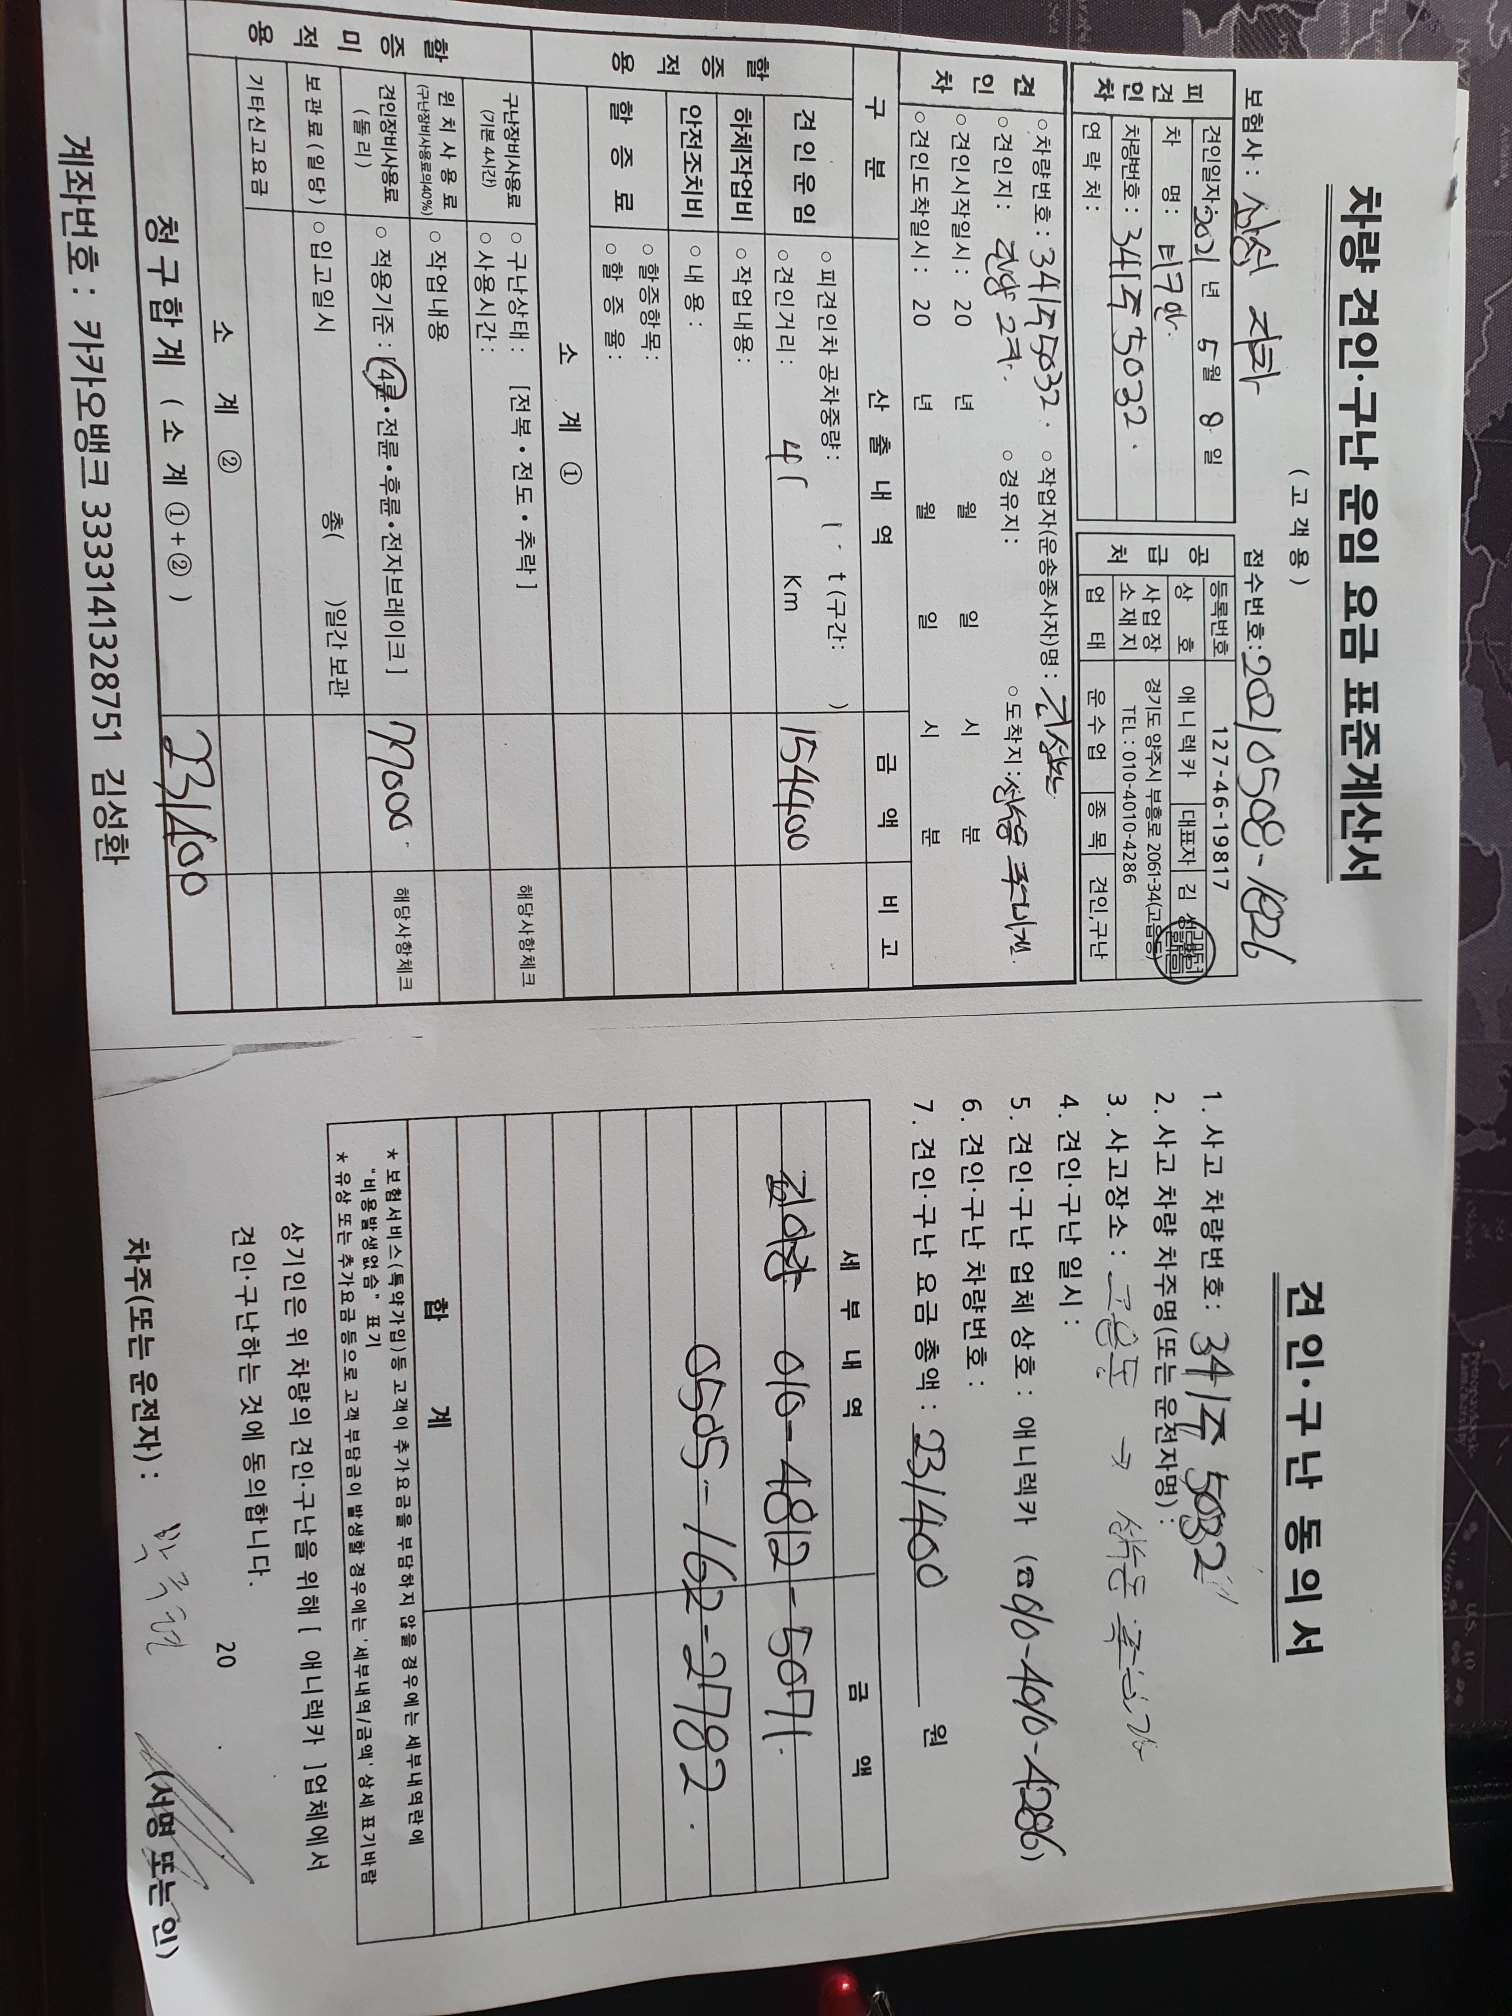 차량 견인·구난 운임 요금 표준계산서
( 고 객 용 )
보험사 : 삼성 접수번호: 20210508-1826
피견인차
견인일자: 2021 년 5월 8 일
차 명 : 티구안.
차량번호 : 341주5032.
연 락 처 :
공급처
등록번호 127-46-19817
상 호 애니렉카 대표자 김 성
사업장 소재지 경기도 양주시 부흥로 2061-34(고읍동)
TEL : 010-4010-4286
업 태 운 수 업 종 목 견인,구난
견인차
○차량번호 : 341주5032. ○작업자(운송종사자)명 :
○견인지 : ○경유지 : ○도착지 :
○견인시작일시 : 20 년 월 일 시 분
○견인도착일시 : 20 년 월 일 시 분
구 분 산 출 내 역 금 액 비 고
할증적용
견 인 운 임 ○피견인차 공차중량 : ( t (구간: )
○견인거리 : 41 Km 154400
하체작업비 ○작업내용:
안전조치비 ○내 용 :
할 증 료 ○할증항목:
○할 증 율 :
소 계 ①
할증미적용
구난장비사용료 (기본 4시간) ○구난상태 : [전복 • 전도 • 추락 ] 해당사항체크
○사용시간 :
윈 치 사 용 료 (구난장비사용료의40%) ○작업내용
견인장비사용료 ( 돌 리 ) ○적용기준 : [4륜•전륜•후륜•전자브레이크 ] 77000 해당사항체크
보 관 료 ( 일 당 ) ○입고일시 총( )일간 보관
기타신고요금
소 계 ②
청 구 합 계 ( 소 계 ① + ② ) 231400
계좌번호 : 카카오뱅크 3333141328751 김성환
견인·구난 동의서
1. 사고 차량번호 : 341주 5032
2. 사고 차량 차주명(또는 운전자명) :
3. 사고장소 :
4. 견인·구난 일시 :
5. 견인·구난 업체 상호 : 애니렉카 (☎010-4010-4286)
6. 견인·구난 차량번호 :
7. 견인·구난 요금 총액 : 231400 원
세 부 내 역 금 액
010-4812-5071.
0505-162-2782.
합 계
* 보험서비스(특약가입)등 고객이 추가요금을 부담하지 않을 경우에는 세부내역란에
"비용발생없음" 표기
* 유상 또는 추가요금 등으로 고객 부담금이 발생할 경우에는 '세부내역/금액' 상세 표기바람
상기인은 위 차량의 견인·구난을 위해 [ 애니렉카 ]업체에서
견인·구난하는 것에 동의합니다.
20 .
차주(또는 운전자) : (서명 또는 인)